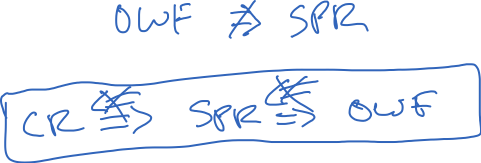 OWF ⇏ SPR
CR ⇍⇒ SPR ⇍⇒ OWF